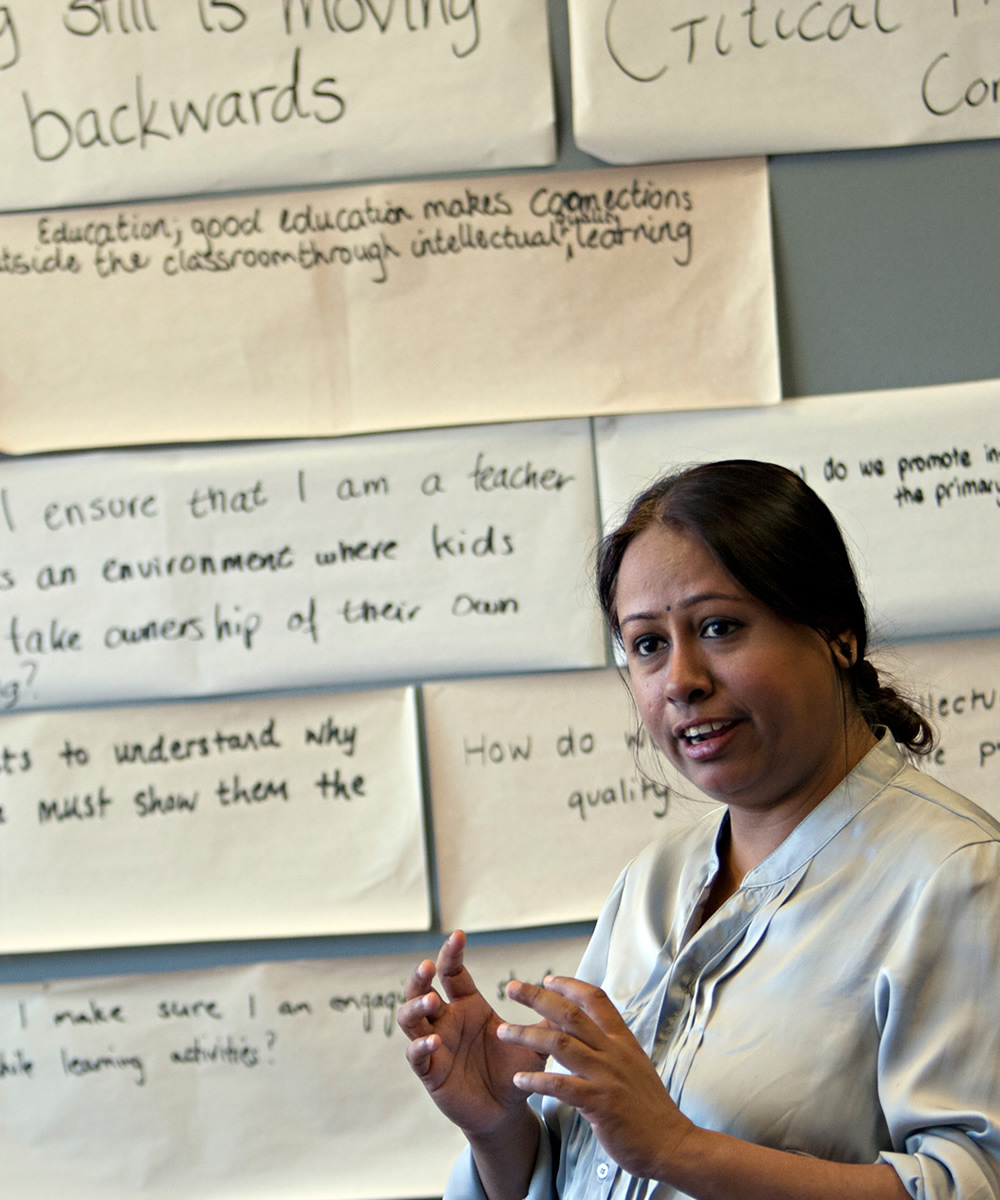 still is moving
backwards
Critical
Education; good education makes connections
quality
the classroom through intellectual, learning
I ensure that I am a teacher
an environment where kids
take ownership of their own
?
do we promote
the primary
to understand why
must show them the
How do
quality
I make sure I am
learning activities?